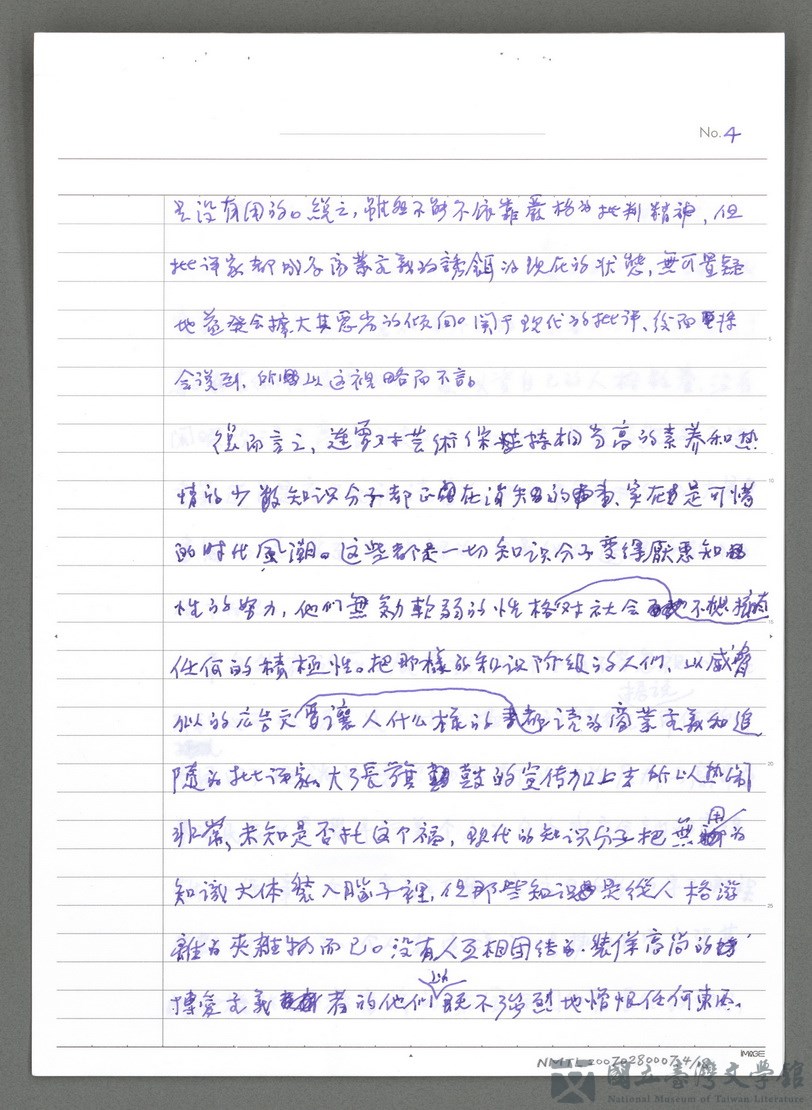 No. 4
是没有用的。總之,雖然不能不依靠嚴格的批判精神,但
批评家却成为商業主義的誘餌的现在的状態,無可置疑
地益發会擴大其惡劣的傾向。関于现代的批评、後面將
会谈到,所以这裡略而不言。
後而言之,連要对芸術保持相当高的素养和热
情的少数知识分子都正在消失的事,实在是可惜
的时代風潮。这些都是一切知识分子变得厭惡知
性的努力,他们無効軟弱的性格对社会不想擁有
任何的積極性。把那樣的知识阶级的人们,以威脅
似的広告文
讓人什么样的都读的商業主義和追
随的批评家大張旗鼓的宣传加上去所以热闹
非常,未知是否托这个福,现代的知识分子把無用的
知識大体裝入腦子裡,但那些知识是從人格游
離的夾雜物而已。没有人互相团结的.裝佯高尚的
博愛主義者的他们既不强烈地憎恨任何東西,
NMTL20070280007
IMAGE
國立臺灣文學館
National Museum of Taiwan Literature